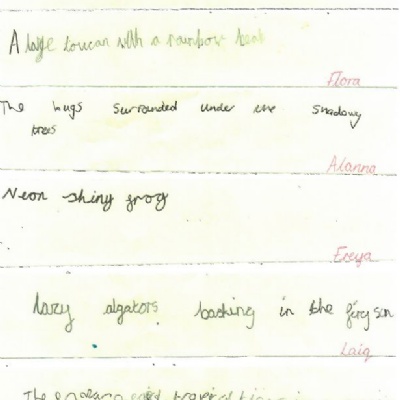 A large toucan with a rainbow beak
Flora
The bugs surrounded under the shadowy
trees
Alanna
Neon shiny frog
Freya
lazy algators basking in the firey sun
Laig
The